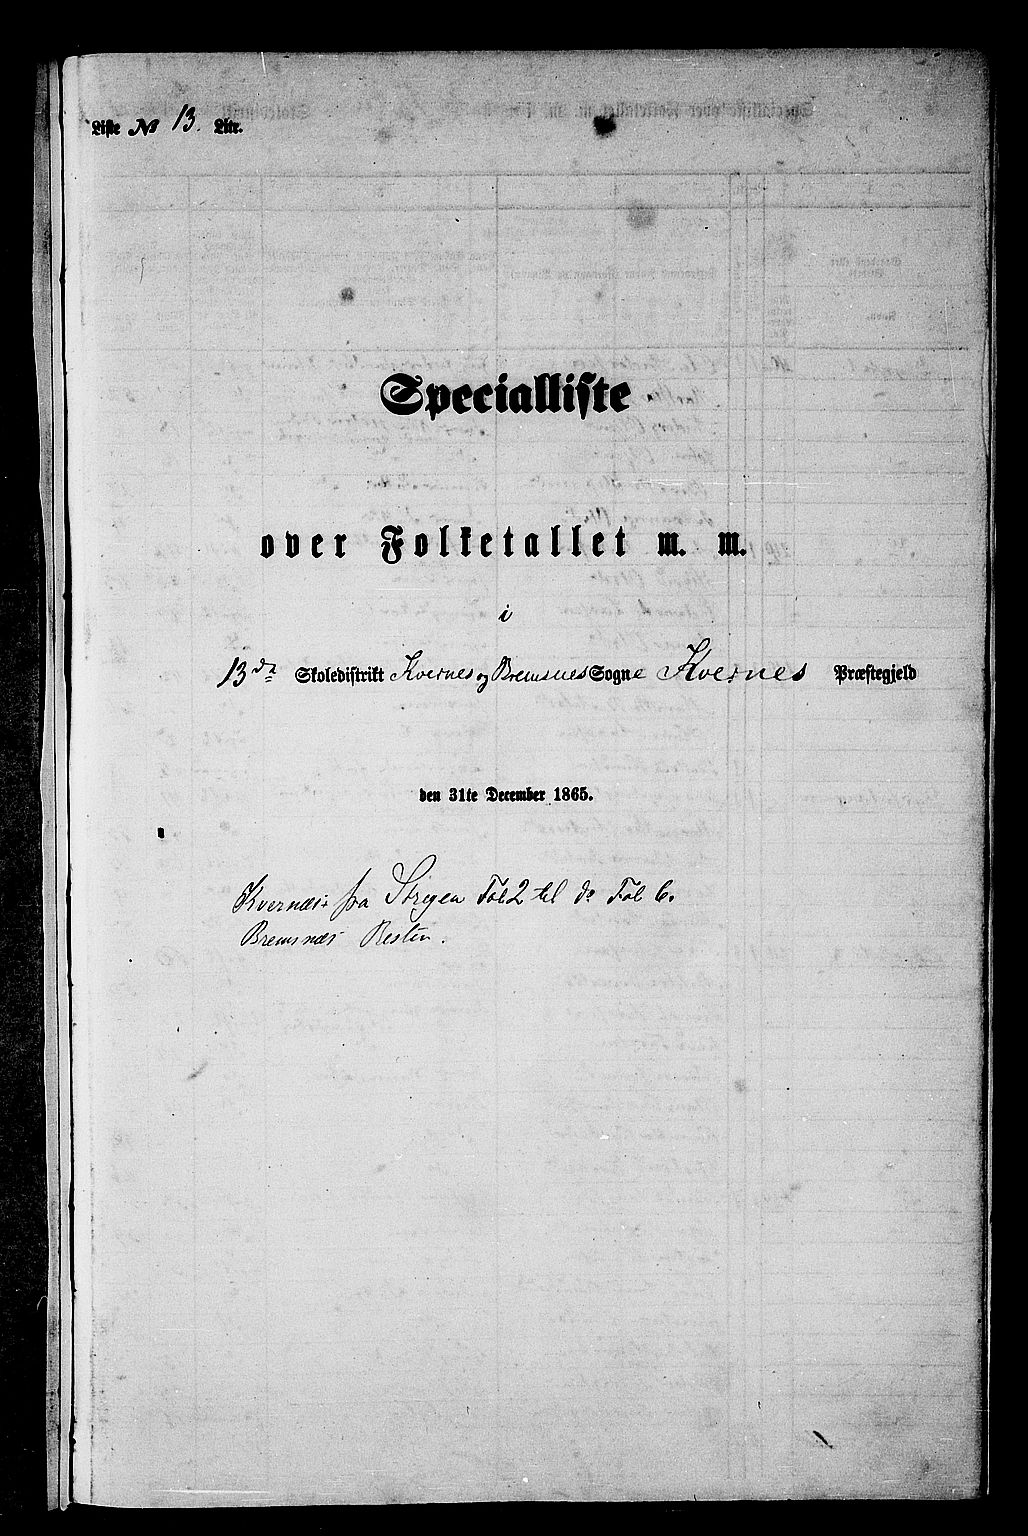 Liste No 13. Litr.
Specialliste
over Folketallet m. m.
i
13de Skoledistrikt Kvernes og Bremsnes Sogne Kvernes Præstegjeld
den 31te December 1865.
Kvernæs fra Strøyen Fol 2 til do Fol 6.
Bremsnæs Resten.